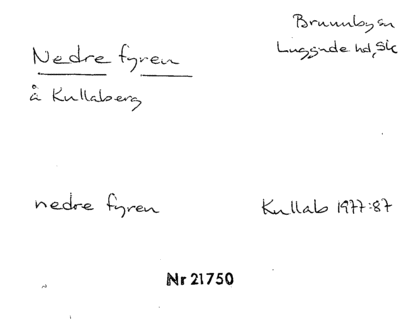 Brunnby sn
Luggude hd, Sk
Nedre fyren
å Kullaberg
nedre fyren
Kullab 1977:87
Nr 21750